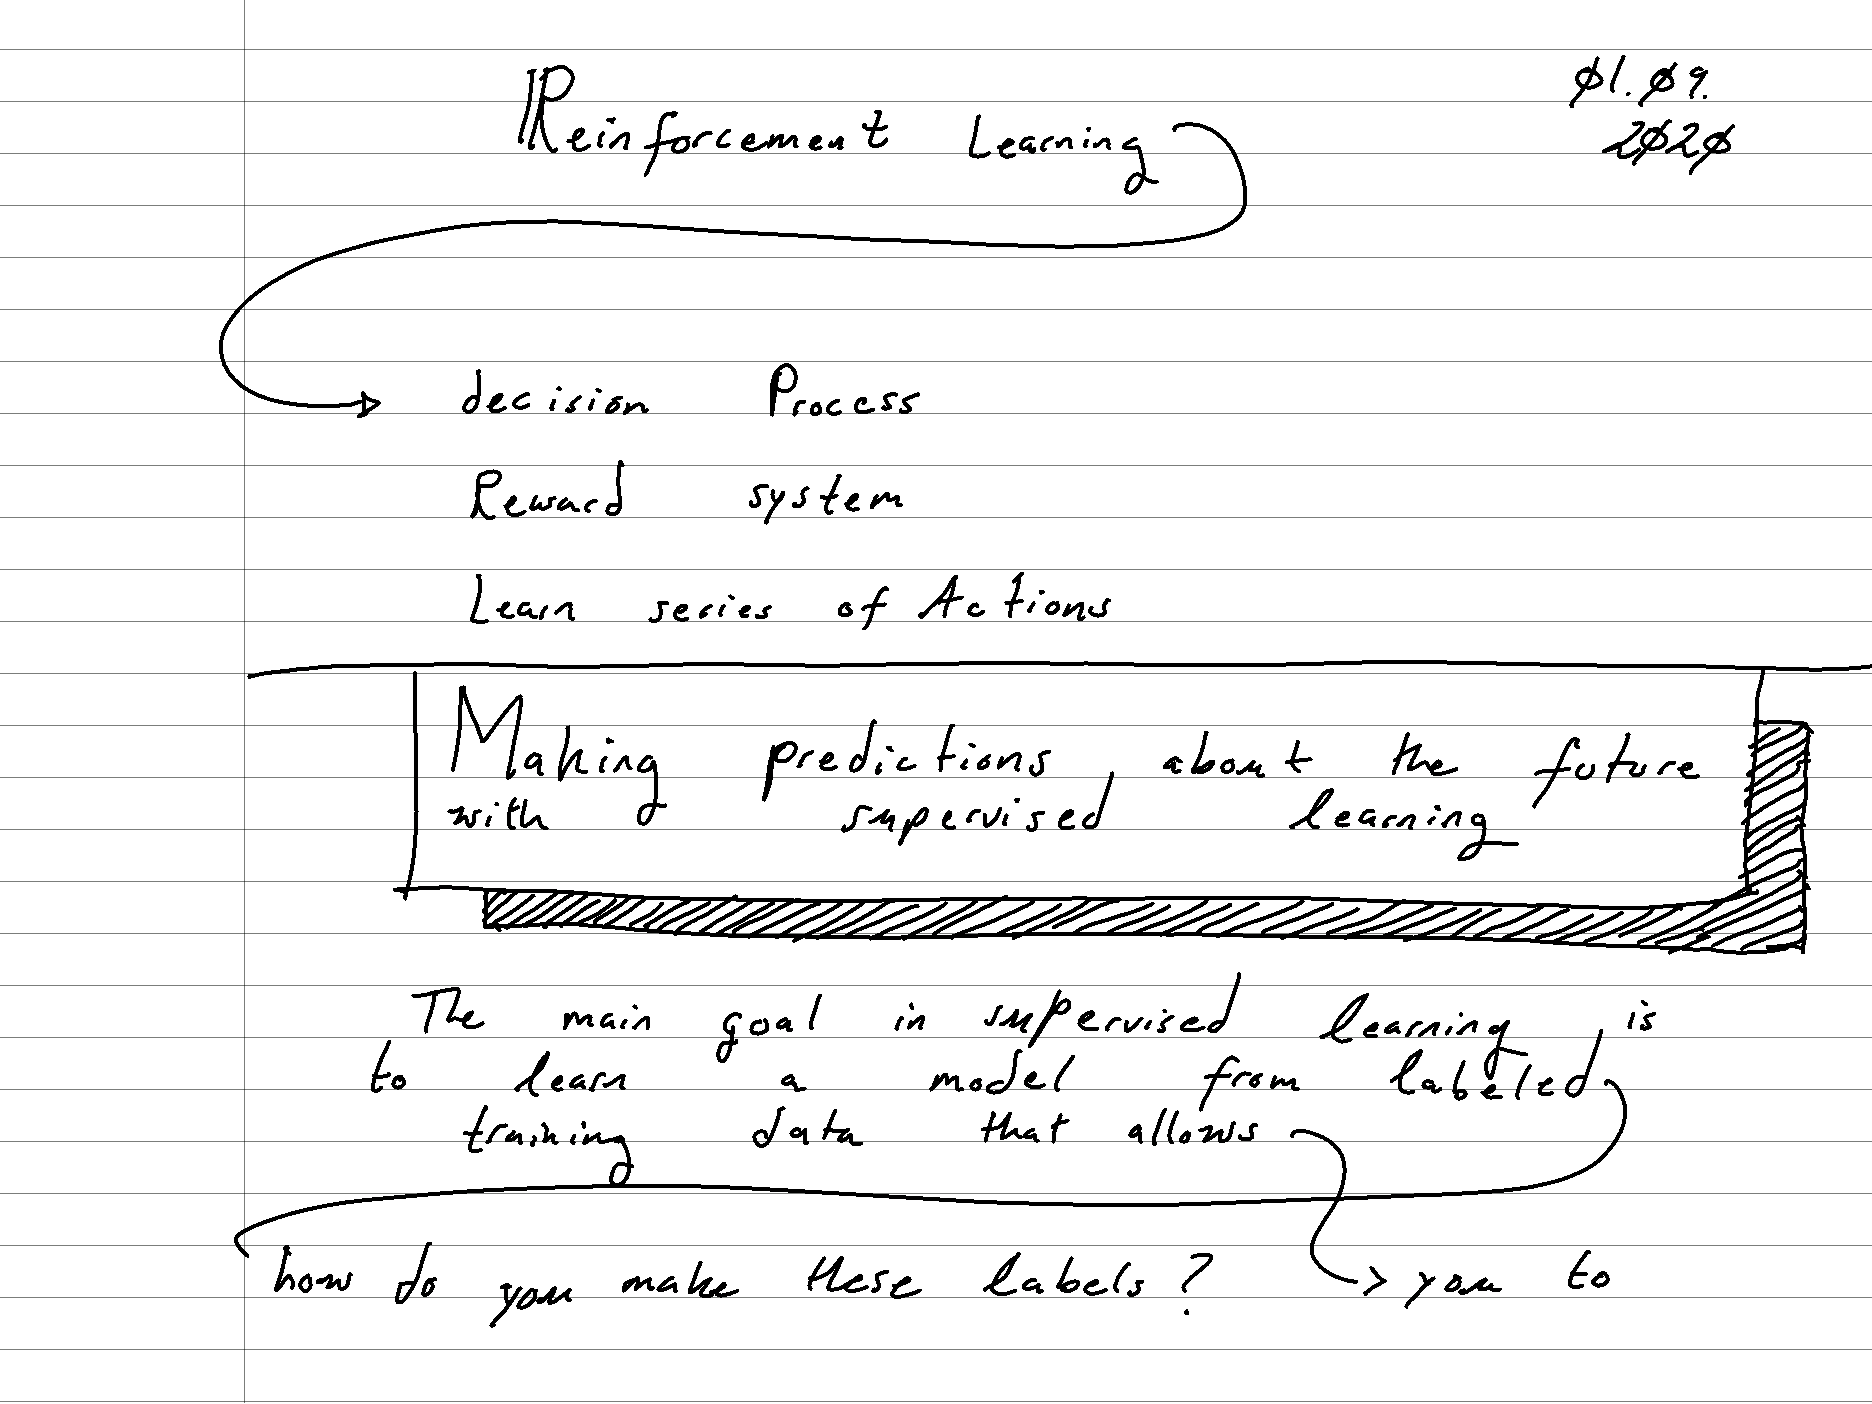 Reinforcement Learning
01.09.
2020
decision Process
Reward system
Learn series of Actions
Making predictions about the future
with supervised learning
The main goal in supervised learning is
to learn a model from labeled
training data that allows
how do you make these labels? you to